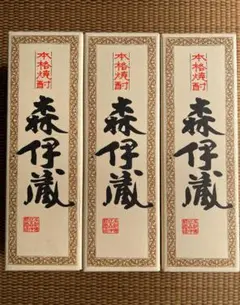 本格焼酎
森伊蔵
本格焼酎
森伊蔵
本格焼酎
森伊蔵